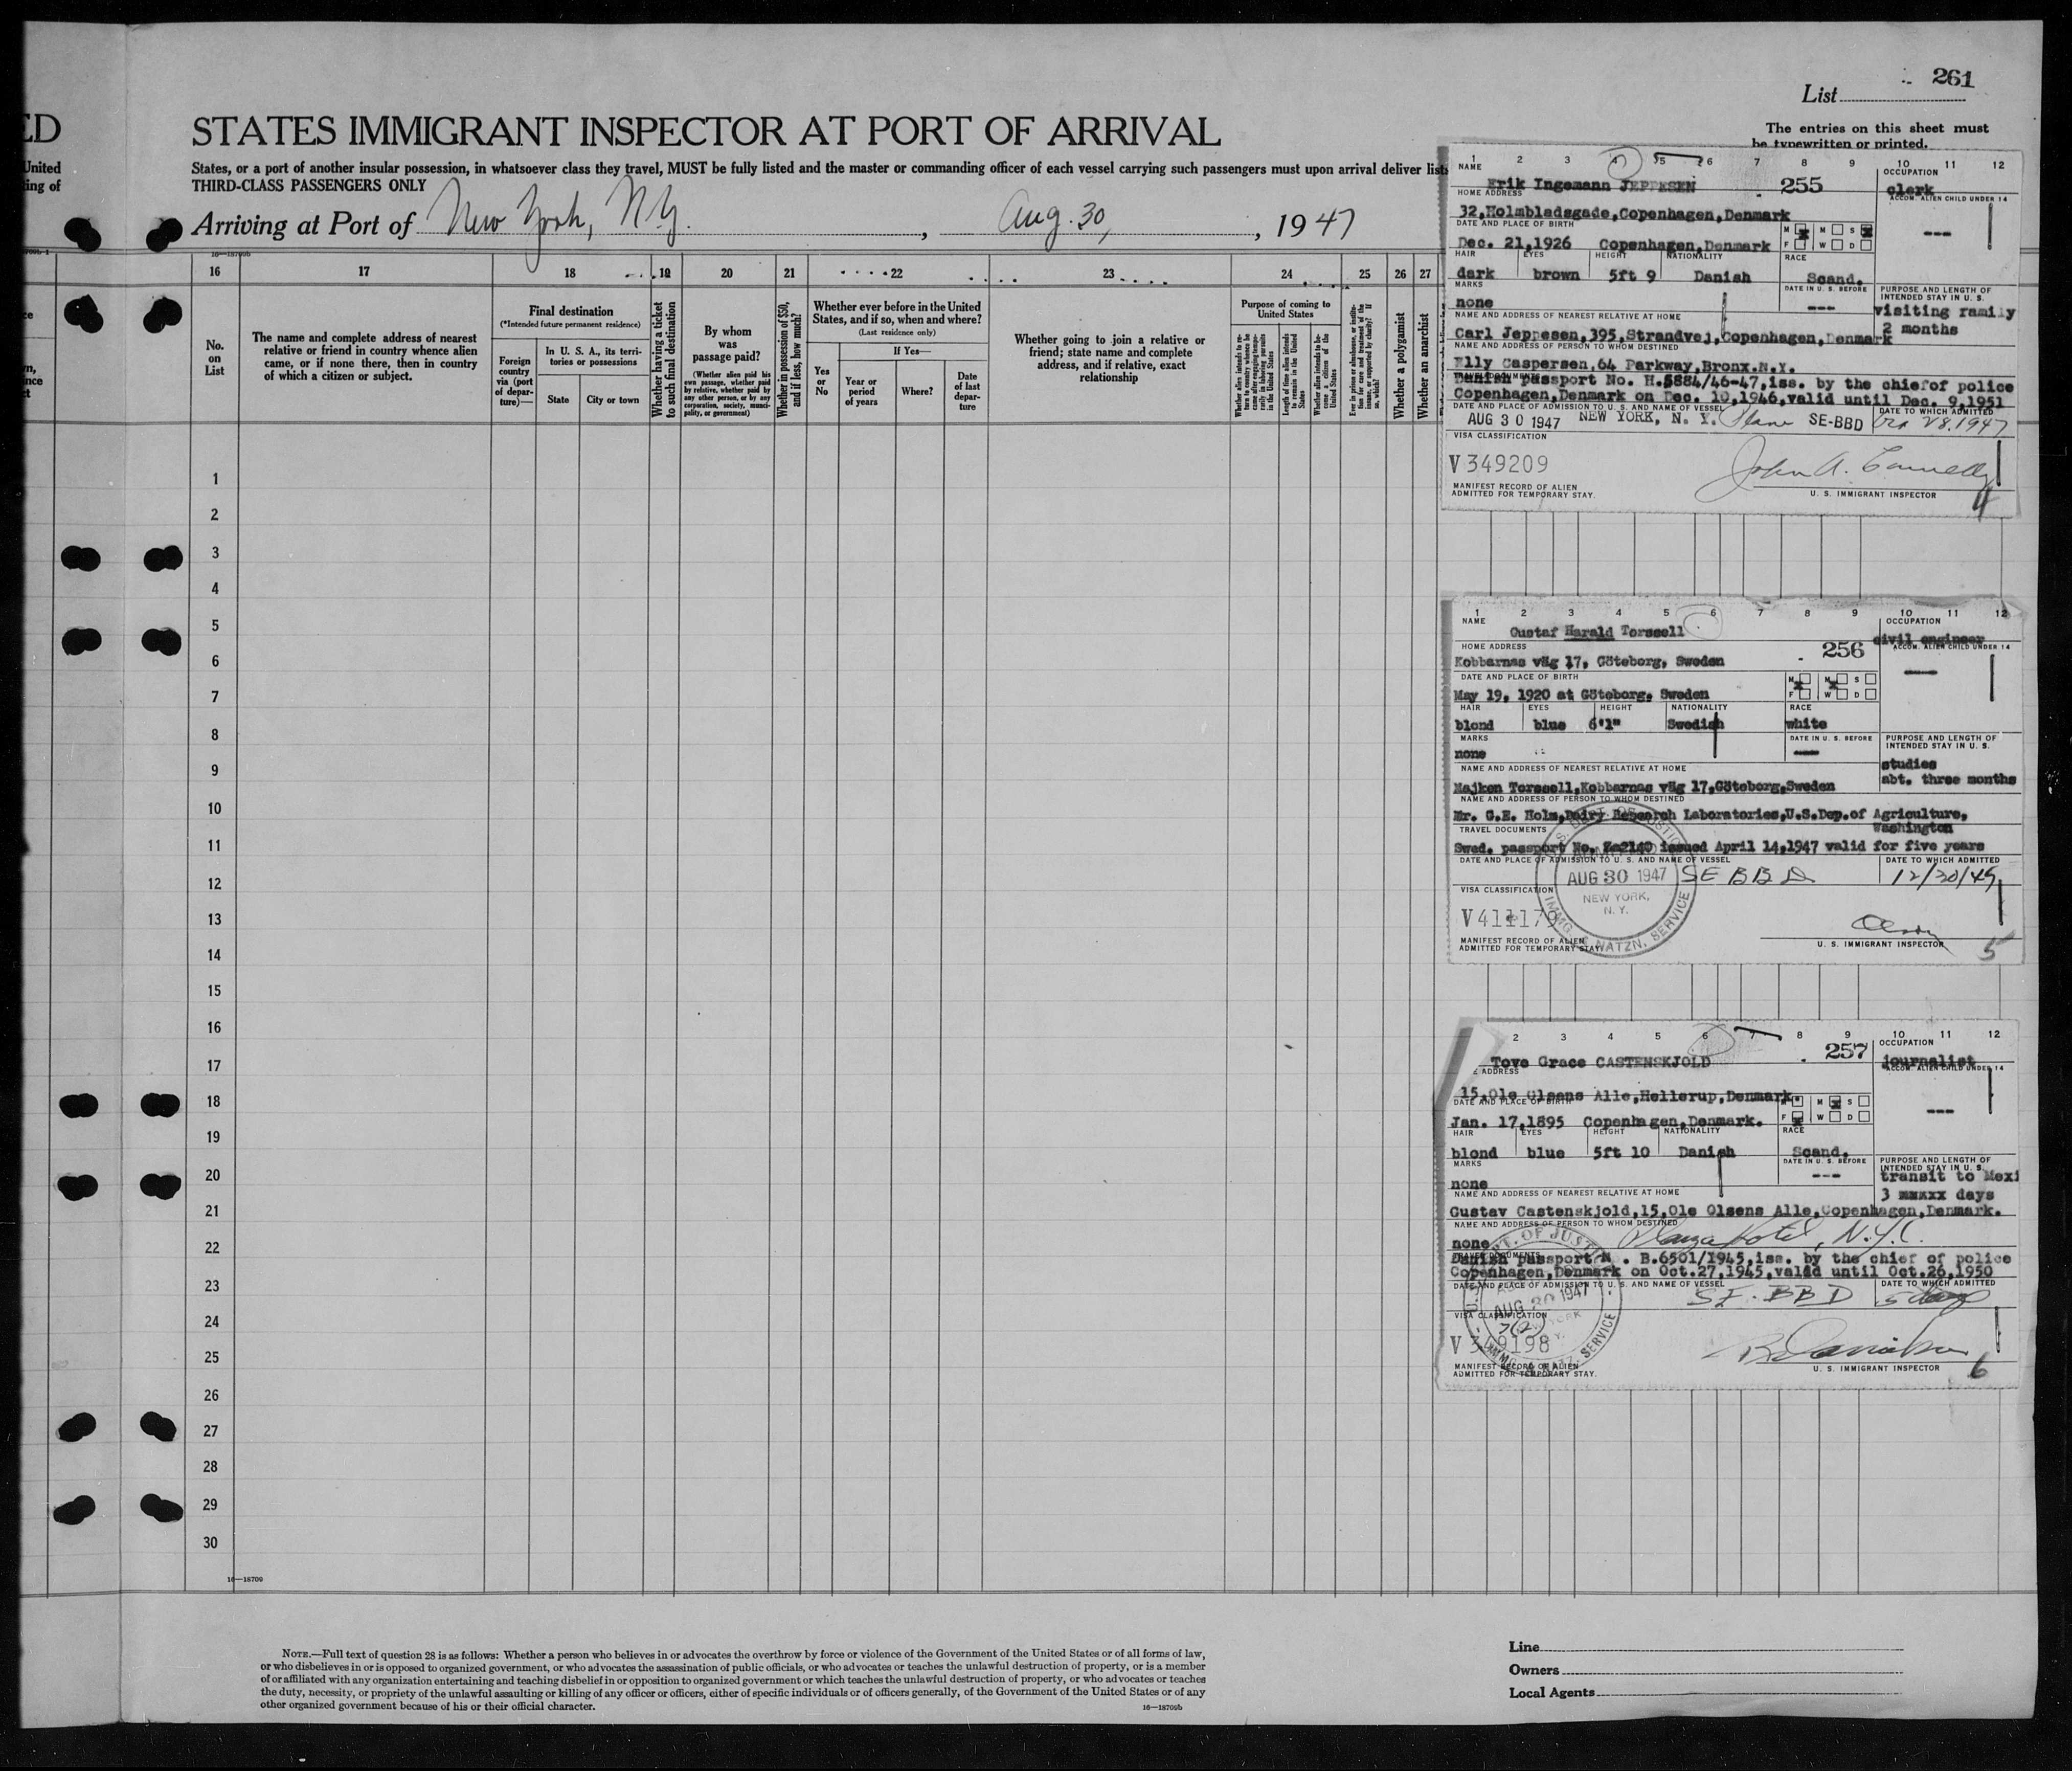 261
List
ED
STATES IMMIGRANT INSPECTOR AT PORT OF ARRIVAL
The entries on this sheet must
be typewritten or printed.
United
States, or a port of another insular possession, in whatsoever class they travel, MUST be fully listed and the master or commanding officer of each vessel carrying such passengers must upon arrival deliver lists
ing of
THIRD-CLASS PASSENGERS ONLY
Arriving at Port of New York, N.Y., Aug. 30, 1947
16 17 18 19 20 21 22 23 24 25 26 27
No.
on
List
The name and complete address of nearest
relative or friend in country whence alien
came, or if none there, then in country
of which a citizen or subject.
Final destination
(*Intended future permanent residence)
Foreign
country
via (port
of depar-
ture)—
In U. S. A., its terri-
tories or possessions
State
City or town
Whether having a ticket
to such final destination
By whom
was
passage paid?
(Whether alien paid his
own passage, whether paid
by relative, whether paid by
any other person, or by any
corporation, society, munici-
pality, or government)
Whether in possession of $50,
and if less, how much?
Whether ever before in the United
States, and if so, when and where?
(Last residence only)
Yes
or
No
If Yes—
Year or
period
of years
Where?
Date
of last
depar-
ture
Whether going to join a relative or
friend; state name and complete
address, and if relative, exact
relationship
Purpose of coming to
United States
Whether a polygamist
Whether an anarchist
1
2
3
4
5
6
7
8
9
10
11
12
13
14
15
16
17
18
19
20
21
22
23
24
25
26
27
28
29
30
16—18700
NOTE.—Full text of question 28 is as follows: Whether a person who believes in or advocates the overthrow by force or violence of the Government of the United States or of all forms of law,
or who disbelieves in or is opposed to organized government, or who advocates the assassination of public officials, or who advocates or teaches the unlawful destruction of property, or is a member
of or affiliated with any organization entertaining and teaching disbelief in or opposition to organized government or which teaches the unlawful destruction of property, or who advocates or teaches
the duty, necessity, or propriety of the unlawful assaulting or killing of any officer or officers, either of specific individuals or of officers generally, of the Government of the United States or of any
other organized government because of his or their official character.
16—18709b
1 2 3 4 5 6 7 8 9 10 11 12
NAME
OCCUPATION
Erik Ingemann JEPPESEN 255 clerk
HOME ADDRESS
ACCOM. ALIEN CHILD UNDER 14
32,Holmbladsgade,Copenhagen,Denmark
DATE AND PLACE OF BIRTH
M M S
F W D
---
Dec. 21,1926 Copenhagen,Denmark
HAIR EYES HEIGHT NATIONALITY RACE
dark brown 5ft 9 Danish Scand.
MARKS
DATE IN U. S. BEFORE
PURPOSE AND LENGTH OF
INTENDED STAY IN U. S.
none --- visiting family
2 months
NAME AND ADDRESS OF NEAREST RELATIVE AT HOME
Carl Jeppesen,395,Strandvej,Copenhagen,Denmark
NAME AND ADDRESS OF PERSON TO WHOM DESTINED
Elly Caspersen,64 Parkway,Bronx.N.Y.
Danish passport No. H.5884/46-47,iss. by the chiefof police
Copenhagen,Denmark on Dec. 10,1946,valid until Dec. 9,1951
DATE AND PLACE OF ADMISSION TO U. S. AND NAME OF VESSEL
DATE TO WHICH ADMITTED
AUG 30 1947 NEW YORK, N. Y. Plane SE-BBD 28.1947
VISA CLASSIFICATION
V349209
John A. Connelly
MANIFEST RECORD OF ALIEN
ADMITTED FOR TEMPORARY STAY.
U. S. IMMIGRANT INSPECTOR
4
1 2 3 4 5 6 7 8 9 10 11 12
NAME
OCCUPATION
Gustaf Harald Torssell 256 civil engineer
HOME ADDRESS
ACCOM. ALIEN CHILD UNDER 14
Kobbarnas väg 17, Göteborg, Sweden
DATE AND PLACE OF BIRTH
M M S
F W D
May 19, 1920 at Göteborg, Sweden
HAIR EYES HEIGHT NATIONALITY RACE
blond blue 6'1" Swedish white
MARKS
DATE IN U. S. BEFORE
PURPOSE AND LENGTH OF
INTENDED STAY IN U. S.
none
studies
abt. three months
NAME AND ADDRESS OF NEAREST RELATIVE AT HOME
Majken Torssell,Kobbarnas väg 17,Göteborg,Sweden
NAME AND ADDRESS OF PERSON TO WHOM DESTINED
Mr. G.E. Holm,Dairy Research Laboratories,U.S.Dep.of Agriculture,
Washington
TRAVEL DOCUMENTS
Swed. passport No. Za2140 issued April 14,1947 valid for five years
DATE AND PLACE OF ADMISSION TO U. S. AND NAME OF VESSEL
DATE TO WHICH ADMITTED
AUG 30 1947 SEBBD 12/30/49
NEW YORK,
N. Y.
IMMIG. & NATZN. SERVICE
VISA CLASSIFICATION
V411179
MANIFEST RECORD OF ALIEN
ADMITTED FOR TEMPORARY STAY.
U. S. IMMIGRANT INSPECTOR
5
2 3 4 5 6 7 8 9 10 11 12
OCCUPATION
Tove Grace CASTENSKJOLD 257 journalist
ADDRESS
ACCOM. ALIEN CHILD UNDER 14
15,Ole Olsens Alle,Hellerup,Denmark
DATE AND PLACE OF BIRTH
M M S
F W D
---
Jan. 17,1895 Copenhagen,Denmark.
HAIR EYES HEIGHT NATIONALITY RACE
blond blue 5ft 10 Danish Scand.
MARKS
DATE IN U. S. BEFORE
PURPOSE AND LENGTH OF
INTENDED STAY IN U. S.
none --- transit to Mexi
3 days
NAME AND ADDRESS OF NEAREST RELATIVE AT HOME
Gustav Castenskjold,15,Ole Olsens Alle,Copenhagen,Denmark.
NAME AND ADDRESS OF PERSON TO WHOM DESTINED
none Plaza Hotel, N.Y.C.
Danish passport N . B.6501/1945,iss. by the chief of police
Copenhagen,Denmark on Oct.27,1945,valid until Oct.26,1950
DATE AND PLACE OF ADMISSION TO U. S. AND NAME OF VESSEL
DATE TO WHICH ADMITTED
AUG 30 1947 SE-BBD 5 days
VISA CLASSIFICATION
V349198
MANIFEST RECORD OF ALIEN
ADMITTED FOR TEMPORARY STAY.
U. S. IMMIGRANT INSPECTOR
6
Line
Owners
Local Agents